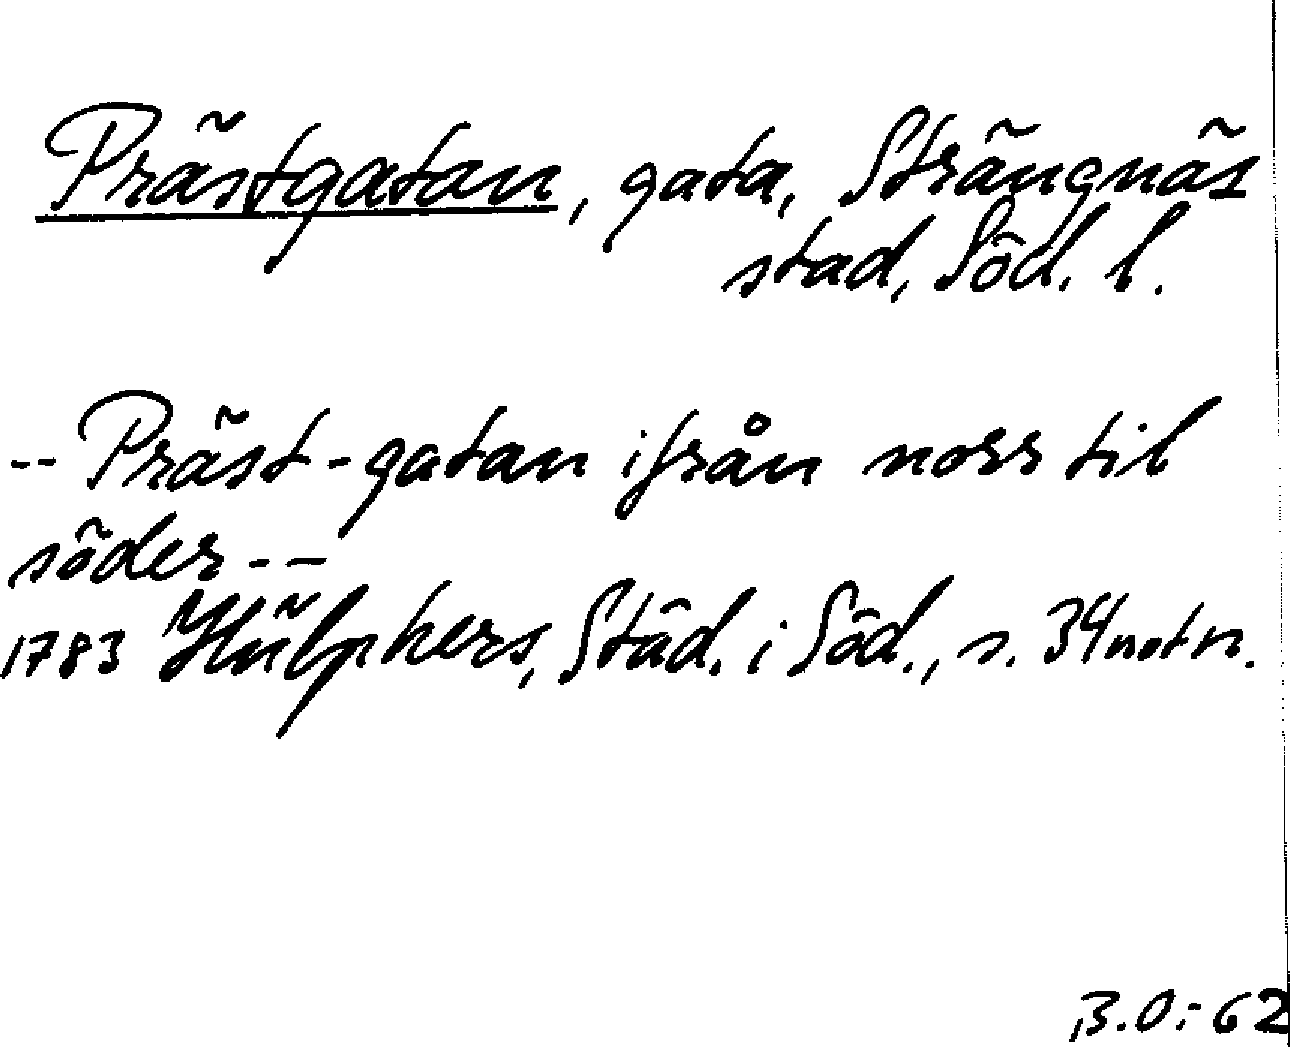 Prästgatan, gata, Strängnäs
stad, Söd. l.
-- Präst-gatan ifrån norr til
söder --
1783 Hülphers, Städ. i Söd., s. 34 notn.
B.O:-62